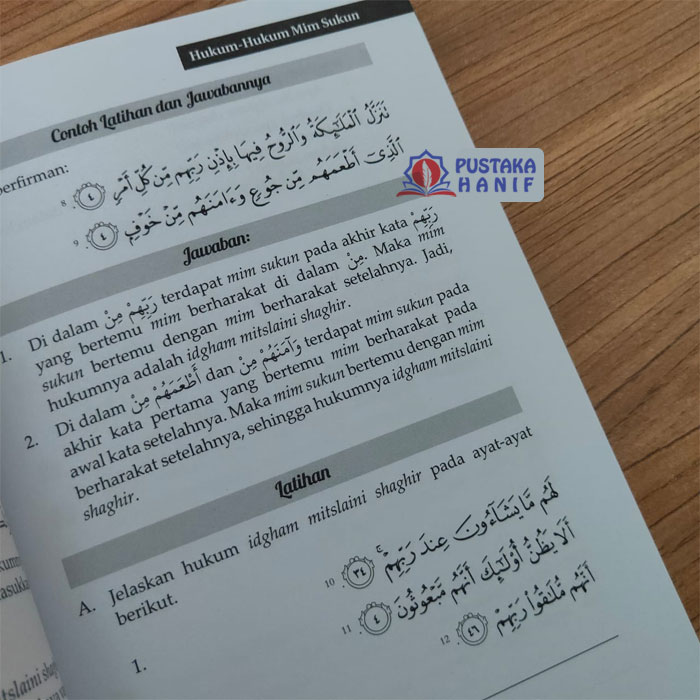 Hukum-Hukum Mim Sukun
Contoh Latihan dan Jawabannya
berfirman:
تَنَزَّلُ ٱلْمَلَـٰٓئِكَةُ وَٱلرُّوحُ فِيهَا بِإِذْنِ رَبِّهِم مِّن كُلِّ أَمْرٍ ٤ 8
ٱلَّذِىٓ أَطْعَمَهُم مِّن جُوعٍ وَءَامَنَهُم مِّنْ خَوْفٍۭ ٤ 9
PUSTAKA
HANIF
Jawaban:
1. Di dalam رَبِّهِمْ مِنْ terdapat mim sukun pada akhir kata رَبِّهِمْ
yang bertemu mim berharakat di dalam مِنْ. Maka mim
sukun bertemu dengan mim berharakat setelahnya. Jadi,
hukumnya adalah idgham mitslaini shaghir.
2. Di dalam أَطْعَمَهُمْ مِنْ dan وَآمَنَهُمْ مِنْ terdapat mim sukun pada
akhir kata pertama yang bertemu mim berharakat pada
awal kata setelahnya. Maka mim sukun bertemu dengan mim
berharakat setelahnya, sehingga hukumnya idgham mitslaini
shaghir.
Latihan
A. Jelaskan hukum idgham mitslaini shaghir pada ayat-ayat
berikut.
1.
لَهُم مَّا يَشَآءُونَ عِندَ رَبِّهِمْ ۚ ٣٤ 10
أَلَا يَظُنُّ أُو۟لَـٰٓئِكَ أَنَّهُم مَّبْعُوثُونَ ٤ 11
أَنَّهُم مُّلَـٰقُوا۟ رَبِّهِمْ ٤٦ 12